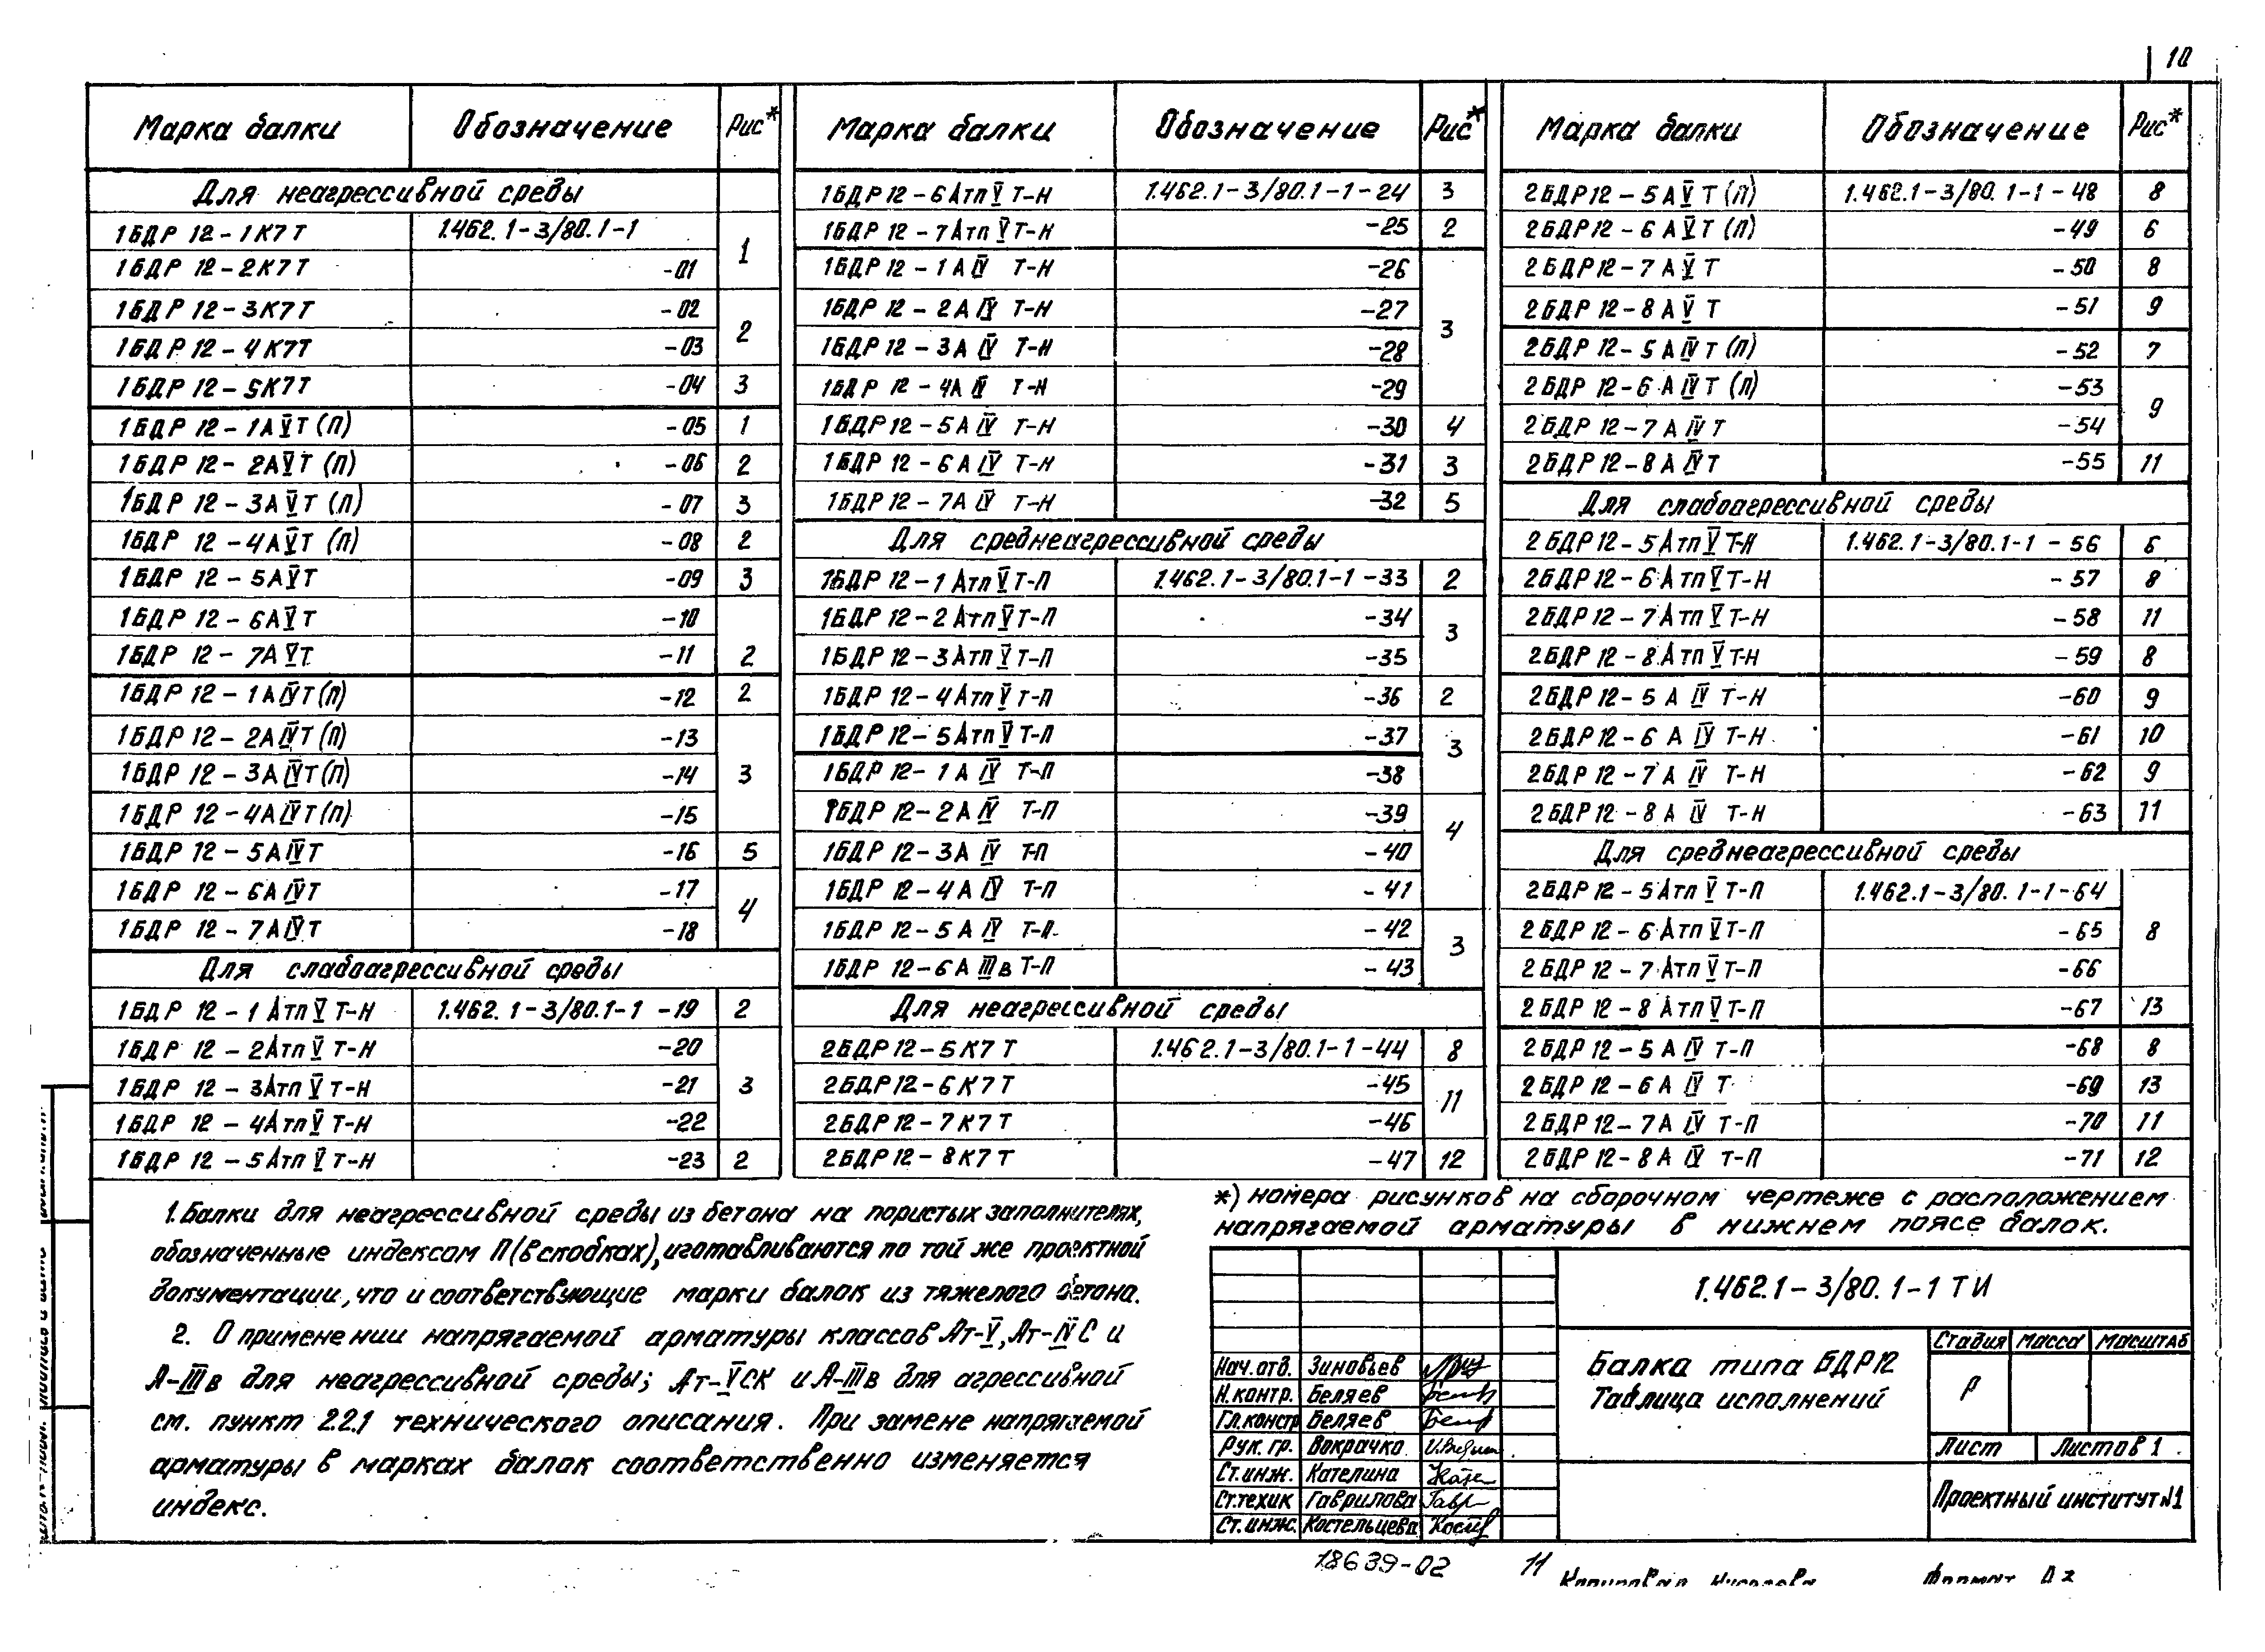 10
Марка балки Обозначение Рис*
Для неагрессивной среды
1БДР 12-1К7Т 1.462.1-3/80.1-1 1
1БДР 12-2К7Т -01
1БДР 12-3К7Т -02 2
1БДР 12-4К7Т -03
1БДР 12-5К7Т -04 3
1БДР 12-1АⅤТ(П) -05 1
1БДР 12-2АⅤТ(П) -06 2
1БДР 12-3АⅤТ(П) -07 3
1БДР 12-4АⅤТ(П) -08 2
1БДР 12-5АⅤТ -09 3
1БДР 12-6АⅤТ -10
1БДР 12-7АⅤТ -11 2
1БДР 12-1АⅣТ(П) -12 2
1БДР 12-2АⅣТ(П) -13
1БДР 12-3АⅣТ(П) -14 3
1БДР 12-4АⅣТ(П) -15
1БДР 12-5АⅣТ -16 5
1БДР 12-6АⅣТ -17 4
1БДР 12-7АⅣТ -18
Для слабоагрессивной среды
1БДР 12-1АтпⅤТ-Н 1.462.1-3/80.1-1-19 2
1БДР 12-2АтпⅤТ-Н -20
1БДР 12-3АтпⅤТ-Н -21 3
1БДР 12-4АтпⅤТ-Н -22
1БДР 12-5АтпⅤТ-Н -23 2
Марка балки Обозначение Рис*
1БДР12-6АтпⅤТ-Н 1.462.1-3/80.1-1-24 3
1БДР 12-7АтпⅤТ-Н -25 2
1БДР 12-1АⅣ Т-Н -26
1БДР 12-2АⅣ Т-Н -27
1БДР 12-3АⅣ Т-Н -28 3
1БДР 12-4АⅣ Т-Н -29
1БДР12-5АⅣ Т-Н -30 4
1БДР 12-6АⅣ Т-Н -31 3
1БДР 12-7АⅣ Т-Н -32 5
Для среднеагрессивной среды
1БДР 12-1АтпⅤТ-П 1.462.1-3/80.1-1-33 2
1БДР12-2АтпⅤТ-П -34
1БДР 12-3АтпⅤТ-П -35 3
1БДР 12-4АтпⅤТ-П -36 2
1БДР 12-5АтпⅤТ-П -37 3
1БДР 12-1АⅣ Т-П -38
1БДР 12-2АⅣ Т-П -39
1БДР 12-3АⅣ Т-П -40 4
1БДР 12-4АⅣ Т-П -41
1БДР 12-5АⅣ Т-П -42 3
1БДР 12-6АⅢв Т-П -43
Для неагрессивной среды
2БДР12-5К7Т 1.462.1-3/80.1-1-44 8
2БДР12-6К7Т -45 11
2БДР12-7К7Т -46
2БДР12-8К7Т -47 12
Марка балки Обозначение Рис*
2БДР12-5АⅤТ(П) 1.462.1-3/80.1-1-48 8
2БДР12-6АⅤТ(П) -49 6
2БДР12-7АⅤТ -50 8
2БДР12-8АⅤТ -51 9
2БДР12-5АⅣТ(П) -52 7
2БДР12-6АⅣТ(П) -53 9
2БДР12-7АⅣТ -54
2БДР12-8АⅣТ -55 11
Для слабоагрессивной среды
2БДР12-5АтпⅤТ-Н 1.462.1-3/80.1-1-56 6
2БДР12-6АтпⅤТ-Н -57 8
2БДР12-7АтпⅤТ-Н -58 11
2БДР12-8АтпⅤТ-Н -59 8
2БДР12-5АⅣ Т-Н -60 9
2БДР12-6АⅣ Т-Н -61 10
2БДР12-7АⅣ Т-Н -62 9
2БДР12-8АⅣ Т-Н -63 11
Для среднеагрессивной среды
2БДР12-5АтпⅤТ-П 1.462.1-3/80.1-1-64
2БДР12-6АтпⅤТ-П -65 8
2БДР12-7АтпⅤТ-П -66
2БДР12-8АтпⅤТ-П -67 13
2БДР12-5АⅣ Т-П -68 8
2БДР12-6АⅣ Т -69 13
2БДР12-7АⅣ Т-П -70 11
2БДР12-8АⅣ Т-П -71 12
1. Балки для неагрессивной среды из бетона на пористых заполнителях,
обозначенные индексом П(в скобках), изготавливаются по той же проектной
документации, что и соответствующие марки балок из тяжелого бетона.
2. О применении напрягаемой арматуры классов Ат-Ⅴ, Ат-ⅣС и
А-Ⅲв для неагрессивной среды; Ат-ⅤСК и А-Ⅲв для агрессивной
см. пункт 2.2.1 технического описания. При замене напрягаемой
арматуры в марках балок соответственно изменяется
индекс.
*) номера рисунков на сборочном чертеже с расположением
напрягаемой арматуры в нижнем поясе балок.
1.462.1-3/80.1-1 ТИ
Нач.отд. Зиновьев
Н.контр. Беляев
Гл.констр Беляев
Рук.гр. Вокрачко
Ст.инж. Кателина
Ст.техик Гаврилова
Ст.инж. Костельцева
Балка типа БДР12
Таблица исполнений
Стадия Масса Масштаб
Р
Лист Листов 1
Проектный институт №1
18639-02 11
Копировал
Формат А2